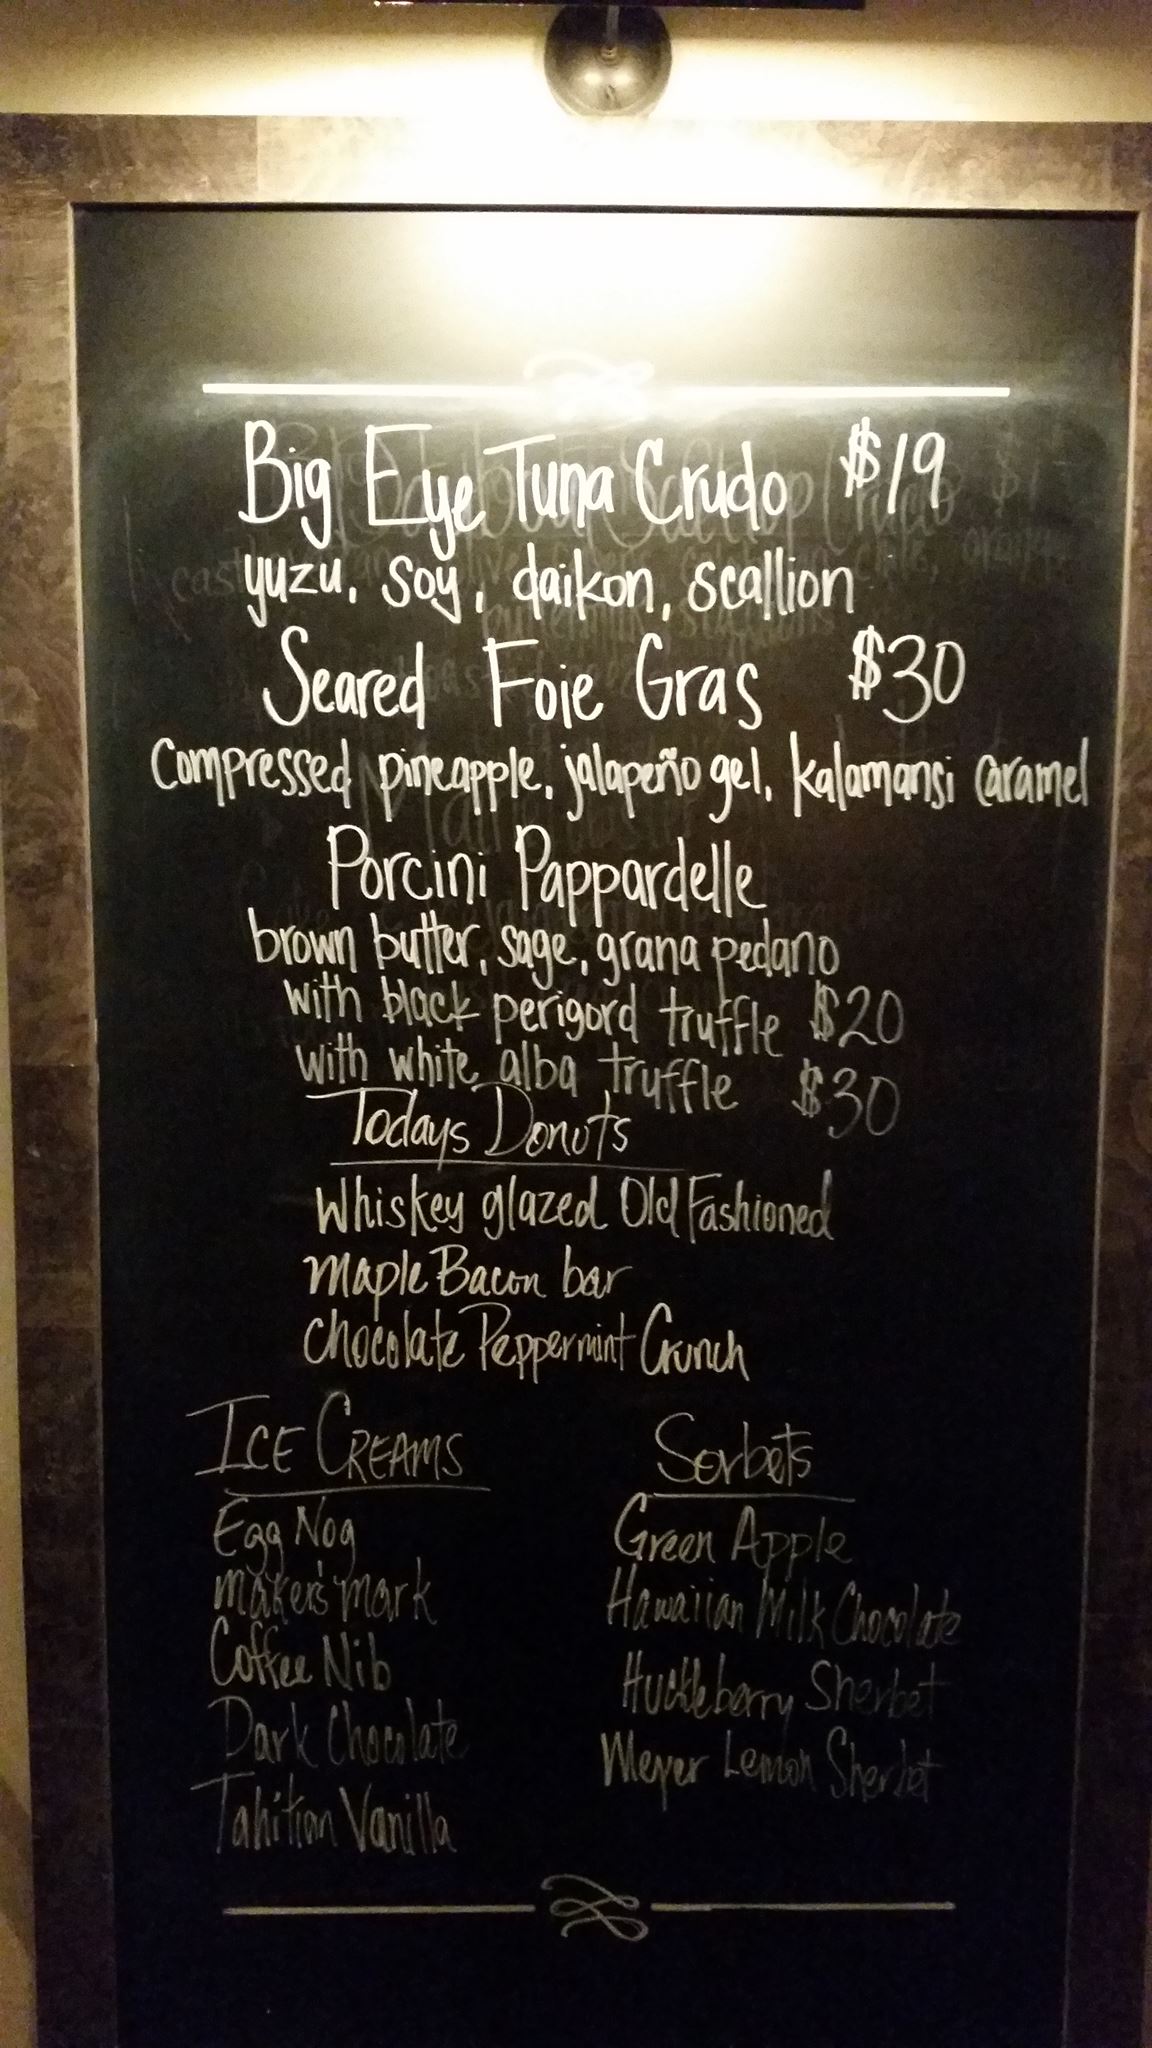 Big Eye Tuna Crudo $19
yuzu, soy, daikon, scallion
Seared Foie Gras $30
Compressed pineapple, jalapeño gel, kalamansi caramel
Porcini Pappardelle
brown butter, sage, grana pedano
with black perigord truffle $20
with white alba truffle $30
Todays Donuts
Whiskey glazed Old Fashioned
Maple Bacon bar
Chocolate Peppermint Crunch
ICE CREAMS
Egg Nog
maker's mark
Coffee Nib
Dark Chocolate
Tahitian Vanilla
Sorbets
Green Apple
Hawaiian Milk Chocolate
Huckleberry Sherbet
Meyer Lemon Sherbet